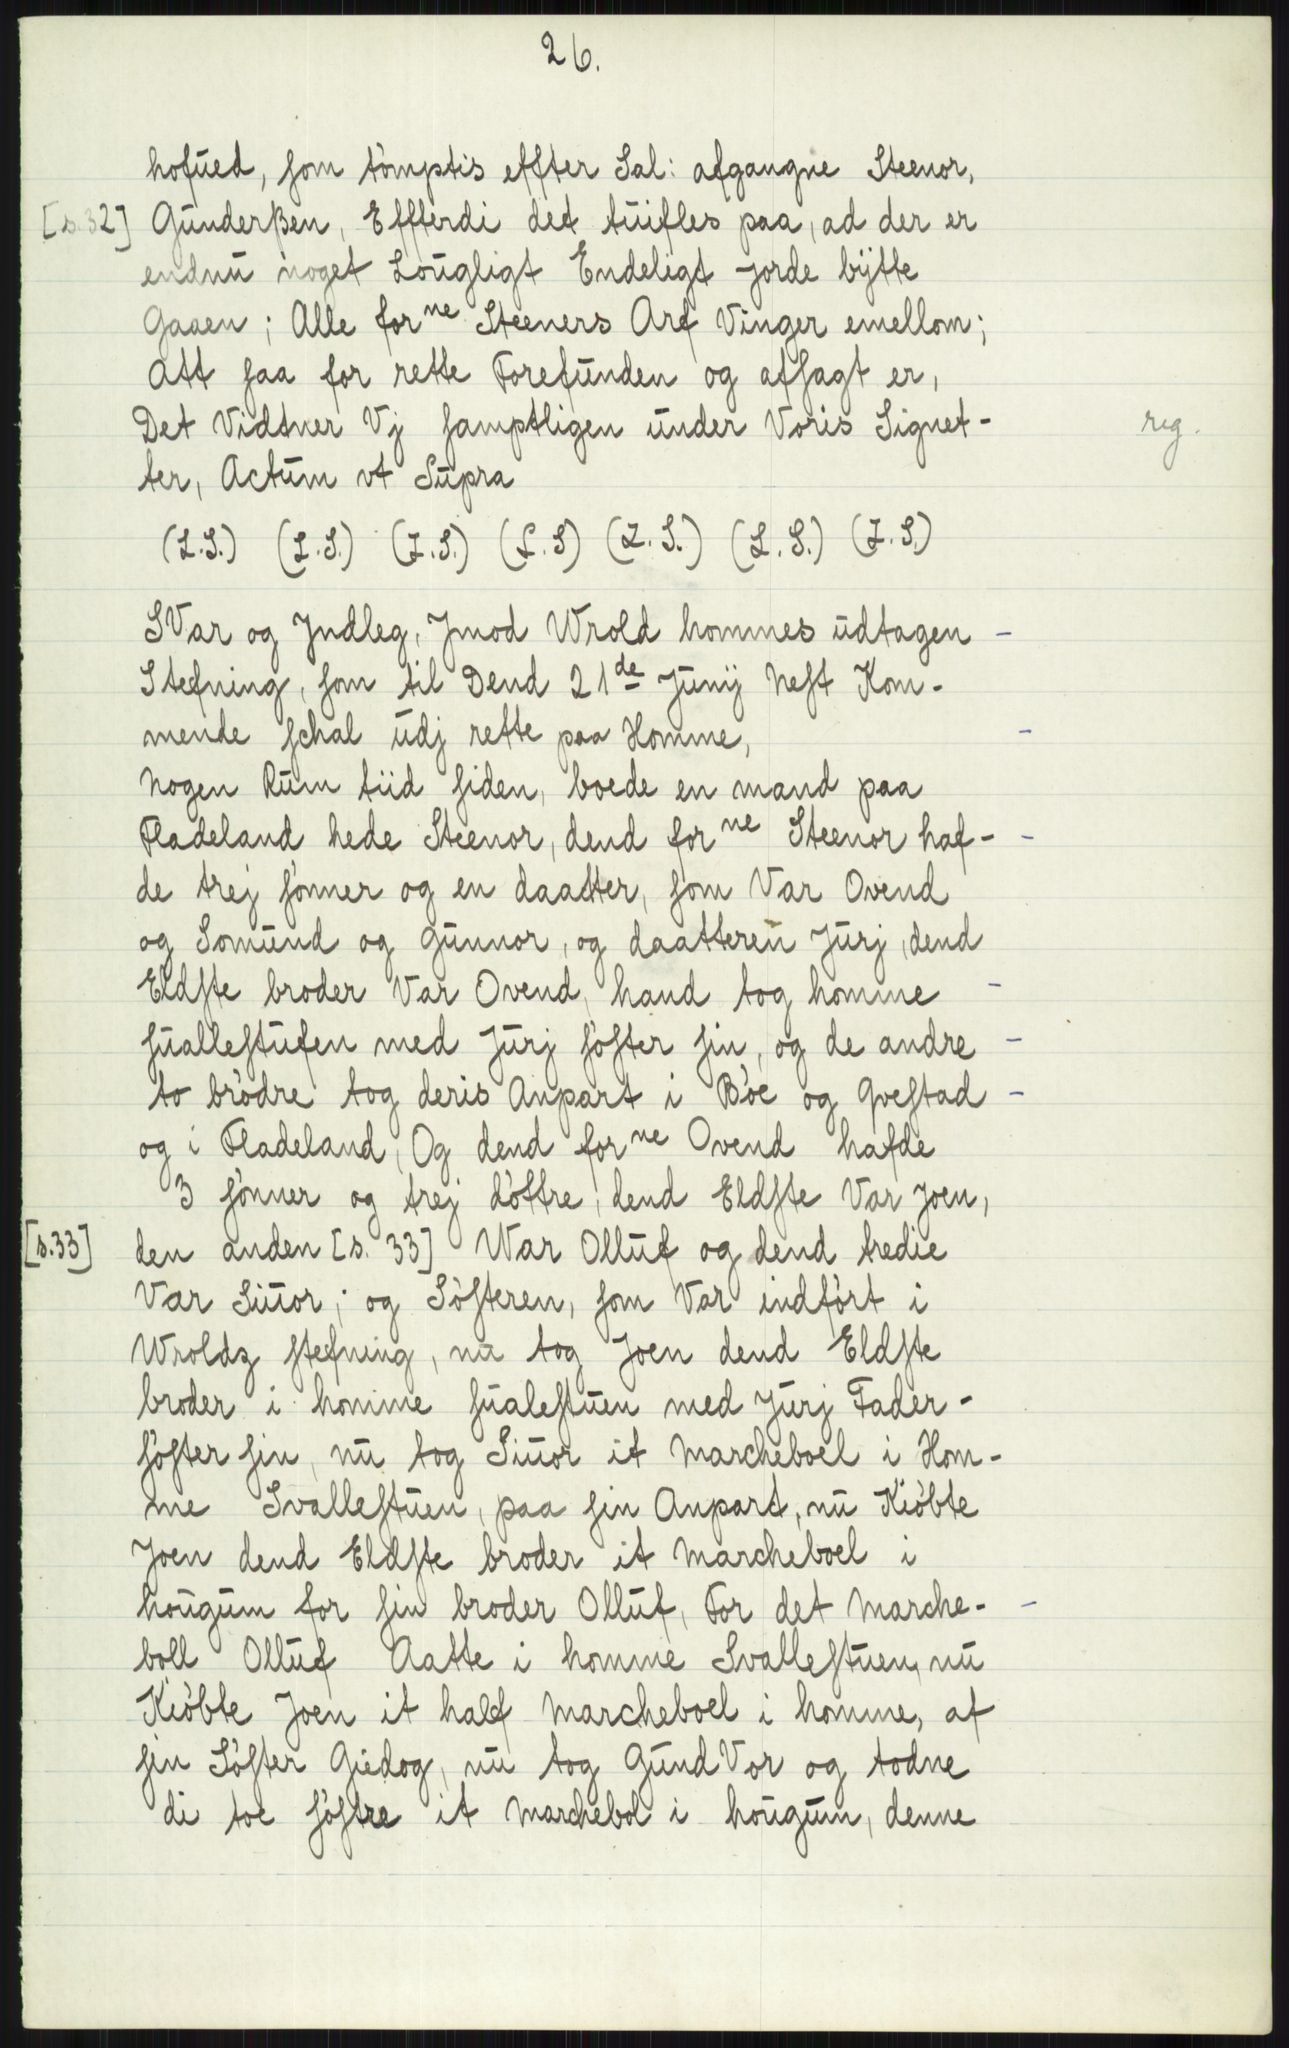 26.
hofued, som tömptis effter Sal: afgangne Steenor,
[s. 32] Gunderßen, Effterdi det tuifles paa, ad der er
endnu noget Lougligt Endeligt Jorde bÿtte
Gaaen; Alle forne Steeners Arf Vinger emellom;
Att saa for rette Forefunden og afsagt er,
Det Vidtner Vj samptligen under Voris Signet-
reg.
ter, Actum vt Supra
(L.S.) (L.S.) (L.S.) (L.S) (L.S.) (L.S.) (L.S.)
SVar og Jndleg, Jmod Wrold hommes udtagen -
Stefning, som til Dend 21de Junij Nest Kom-
mende schal udj rette paa Homme, -
Nogen Rum tiid siden, boede en mand paa
Fladeland hede Steenor, dend forne Steenor haf- -
de trej sønner og en daatter, som Var Ovend
og Somund og gunnor, og daatteren Jurj, dend
Eldste broder Var Ovend, hand tog homme -
sualestufen med Jurj søster sin, og de andre -
to brødre tog deris Anpart i Bøe og Qvestad -
og i Fladeland, Og dend forne Ovend hafde
3 sønner og trej døttre, dend Eldste Var Joen,
[s.33] den anden [s. 33] War Olluf og dend tredie
Var Siuor; og Søsteren, som Var indført i
Wroldz stefning, nu tog Joen dend Eldste
broder i homme sualestuen med Jurj Fader-
søster sin, nu tog Siuor it Marcheboel i Hom-
me Svallestuen, paa sin Anpart, nu Kiøbte
Joen dend Eldste broder it Marcheboel i
hougum for sin broder Olluf, For det Marche- -
boll Olluf Aatte i homme Svallestuen, nu
Kiøbte Joen it half Marcheboel i homme, af
sin Søster Giedog, nu tog Gund Vor og todne
di toe søstre it Marchebol i hougum, denne